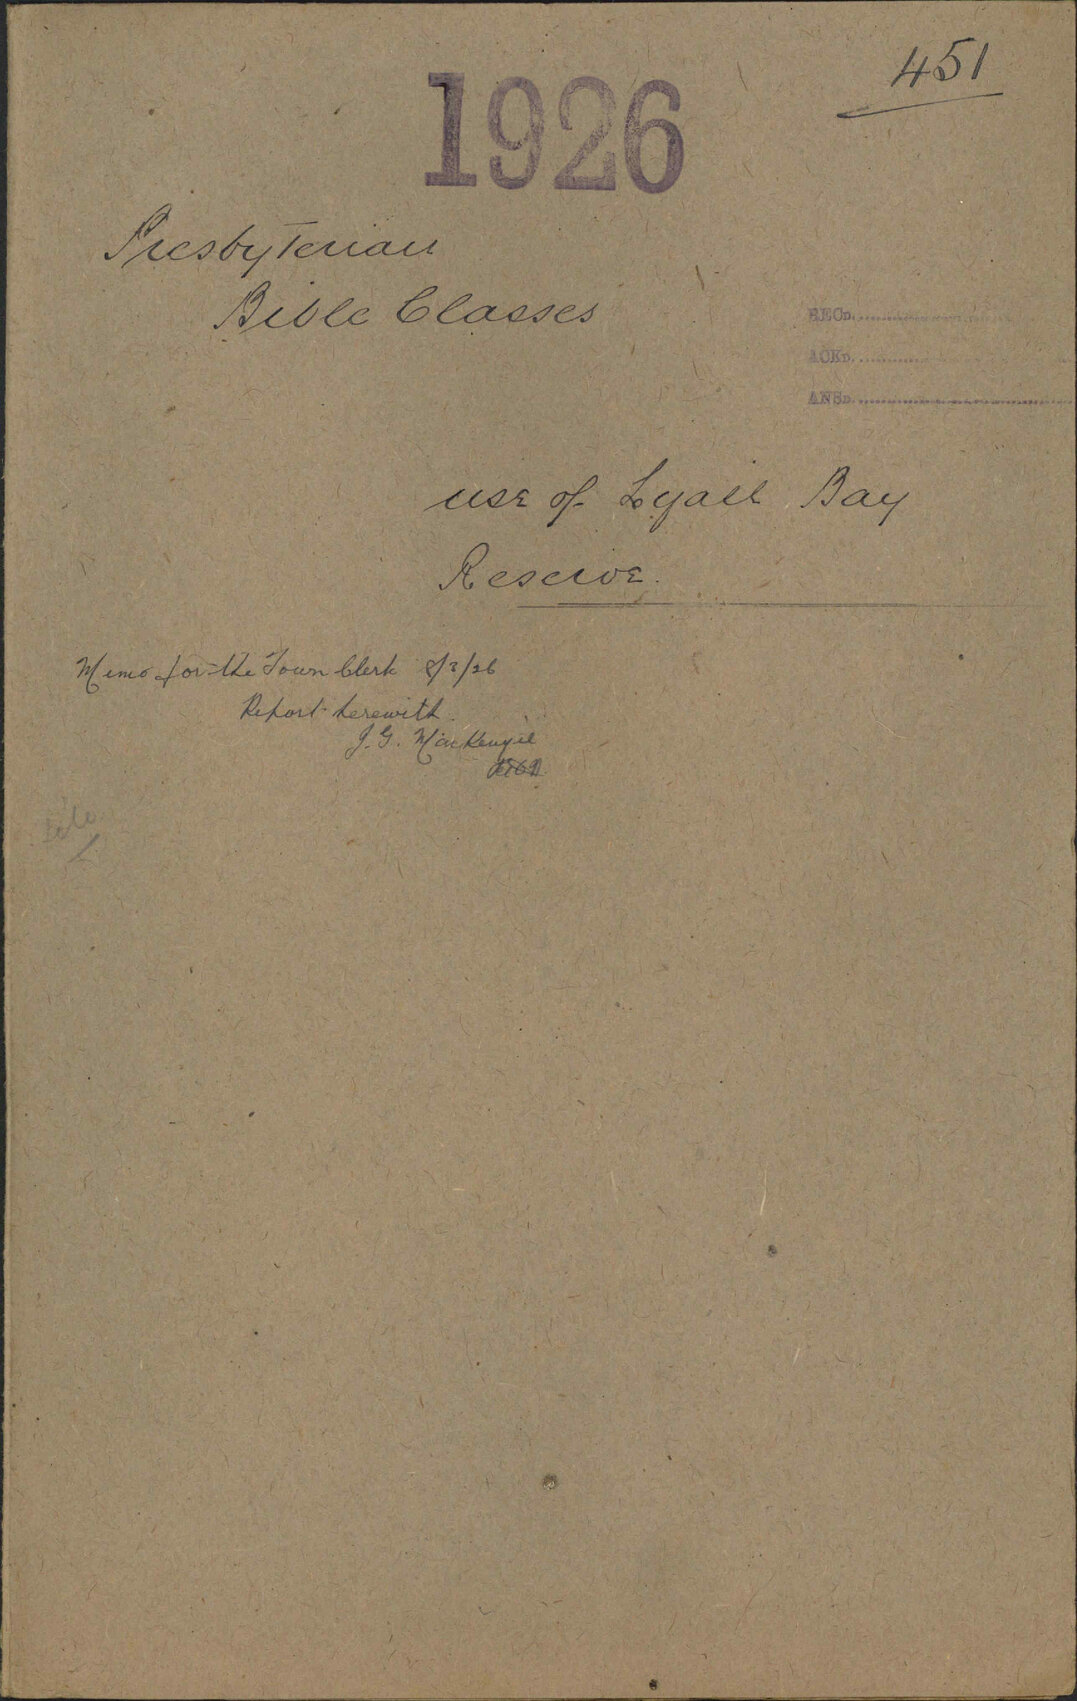 451
1926
Presbyterian
Bible Classes
RECD.
ACKD.
ANSD.
use of Lyall Bay
Reserve.
Memo for the Town Clerk 8/3/26
Report herewith.
J. G. MacKenzie